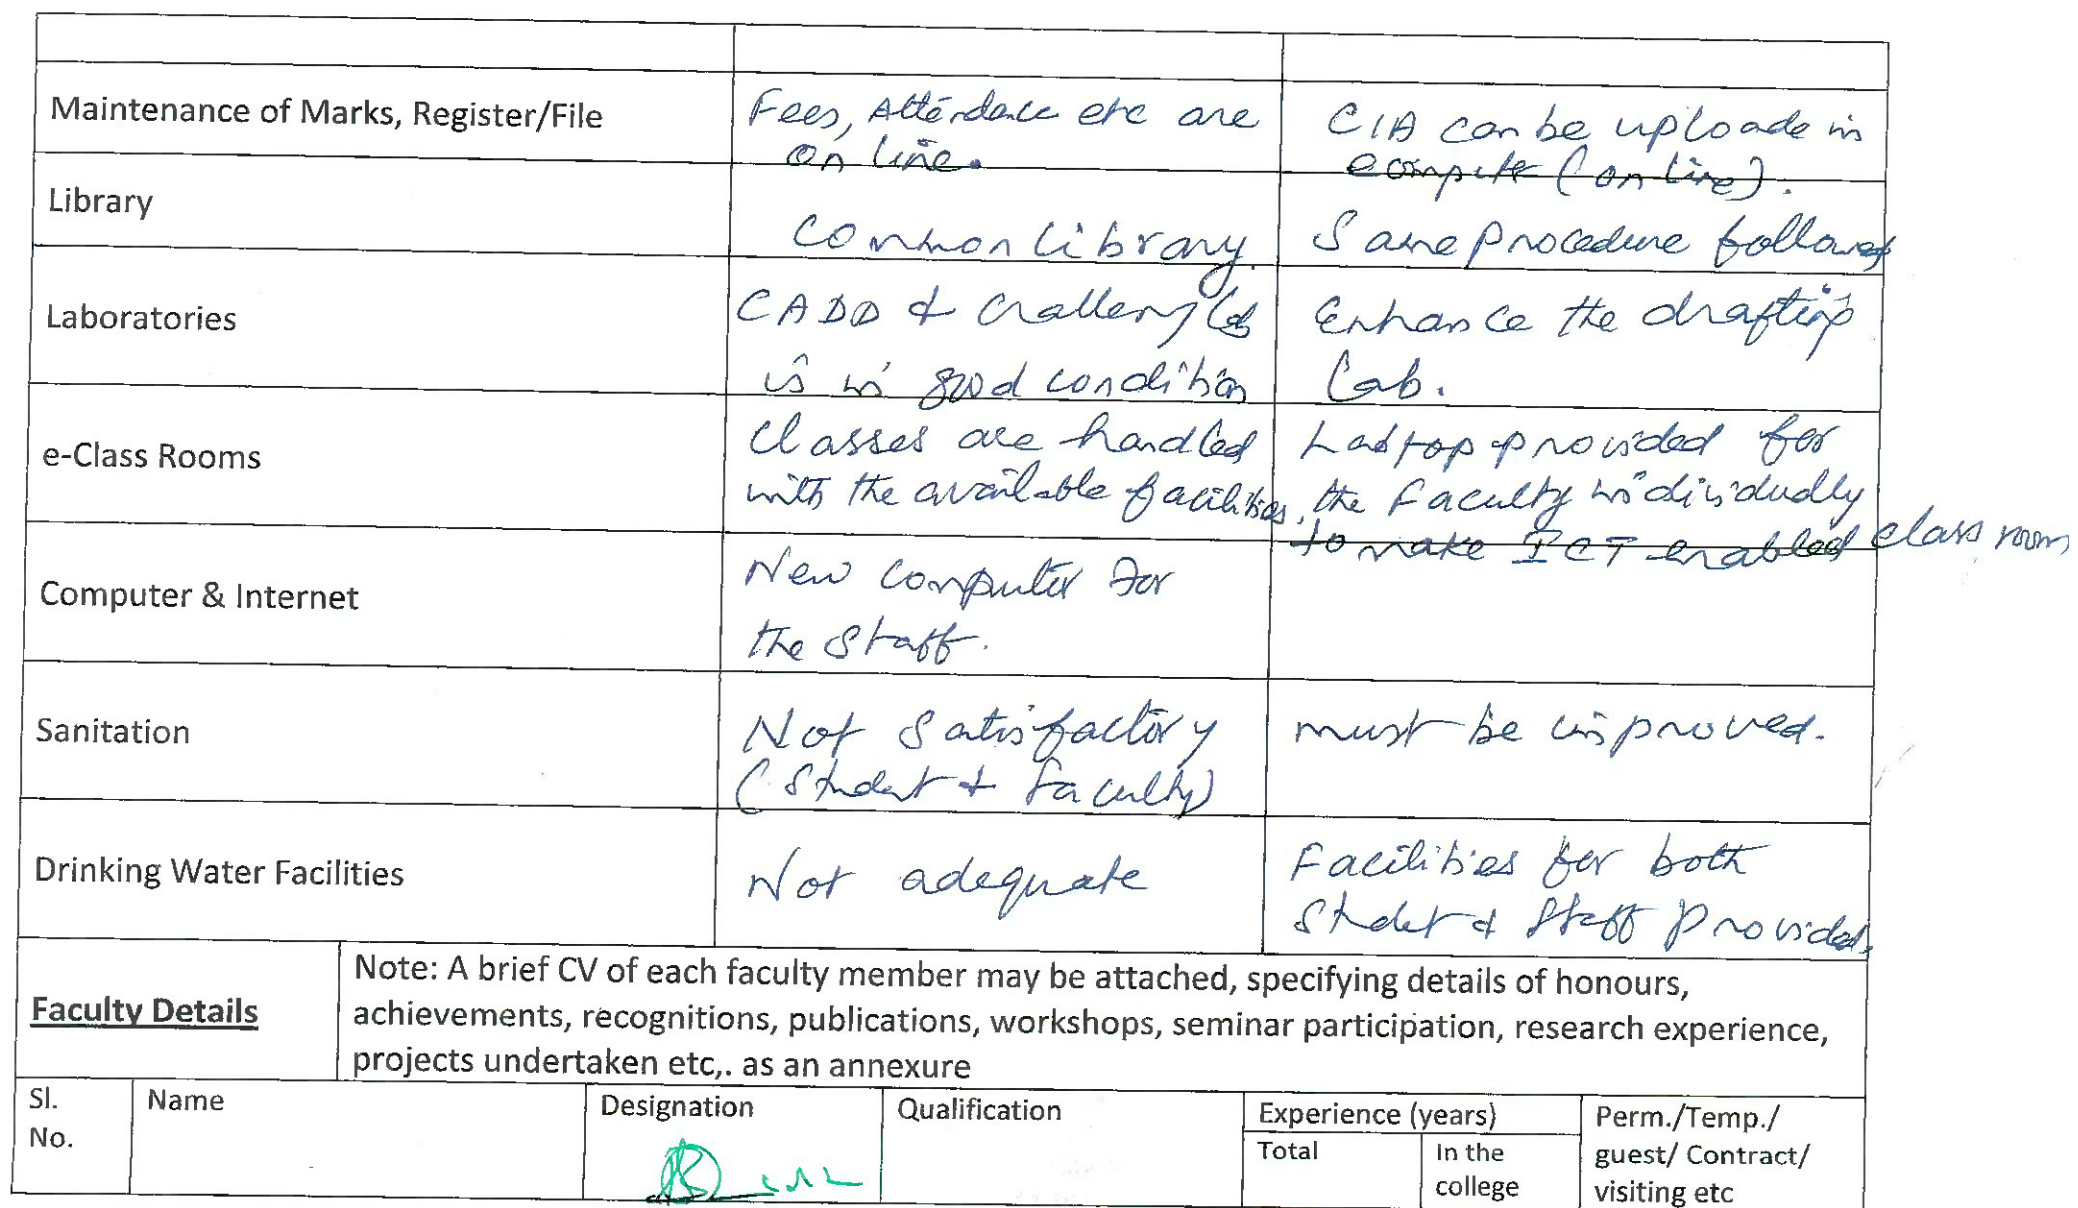 Maintenance of Marks, Register/File
Fees, Attendance etc are
on line.
CIA can be uploade in
compute (on line).
Library
Common library.
Same procedure followed
Laboratories
CADD &
is in good condition
Enhance the drafting
Lab.
e-Class Rooms
Classes are handled
with the available facilities,
Laptop provided for
the Faculty individually
to make ICT enabled class room
Computer & Internet
New computer for
the staff.
Sanitation
Not Satisfactory
(Student & Faculty)
must be improved.
Drinking Water Facilities
Not adequate
Facilities for both
Student & Staff provided.
Faculty Details
Note: A brief CV of each faculty member may be attached, specifying details of honours,
achievements, recognitions, publications, workshops, seminar participation, research experience,
projects undertaken etc,. as an annexure
Sl.
No.
Name
Designation
Qualification
Experience (years)
Total
In the
college
Perm./Temp./
guest/ Contract/
visiting etc